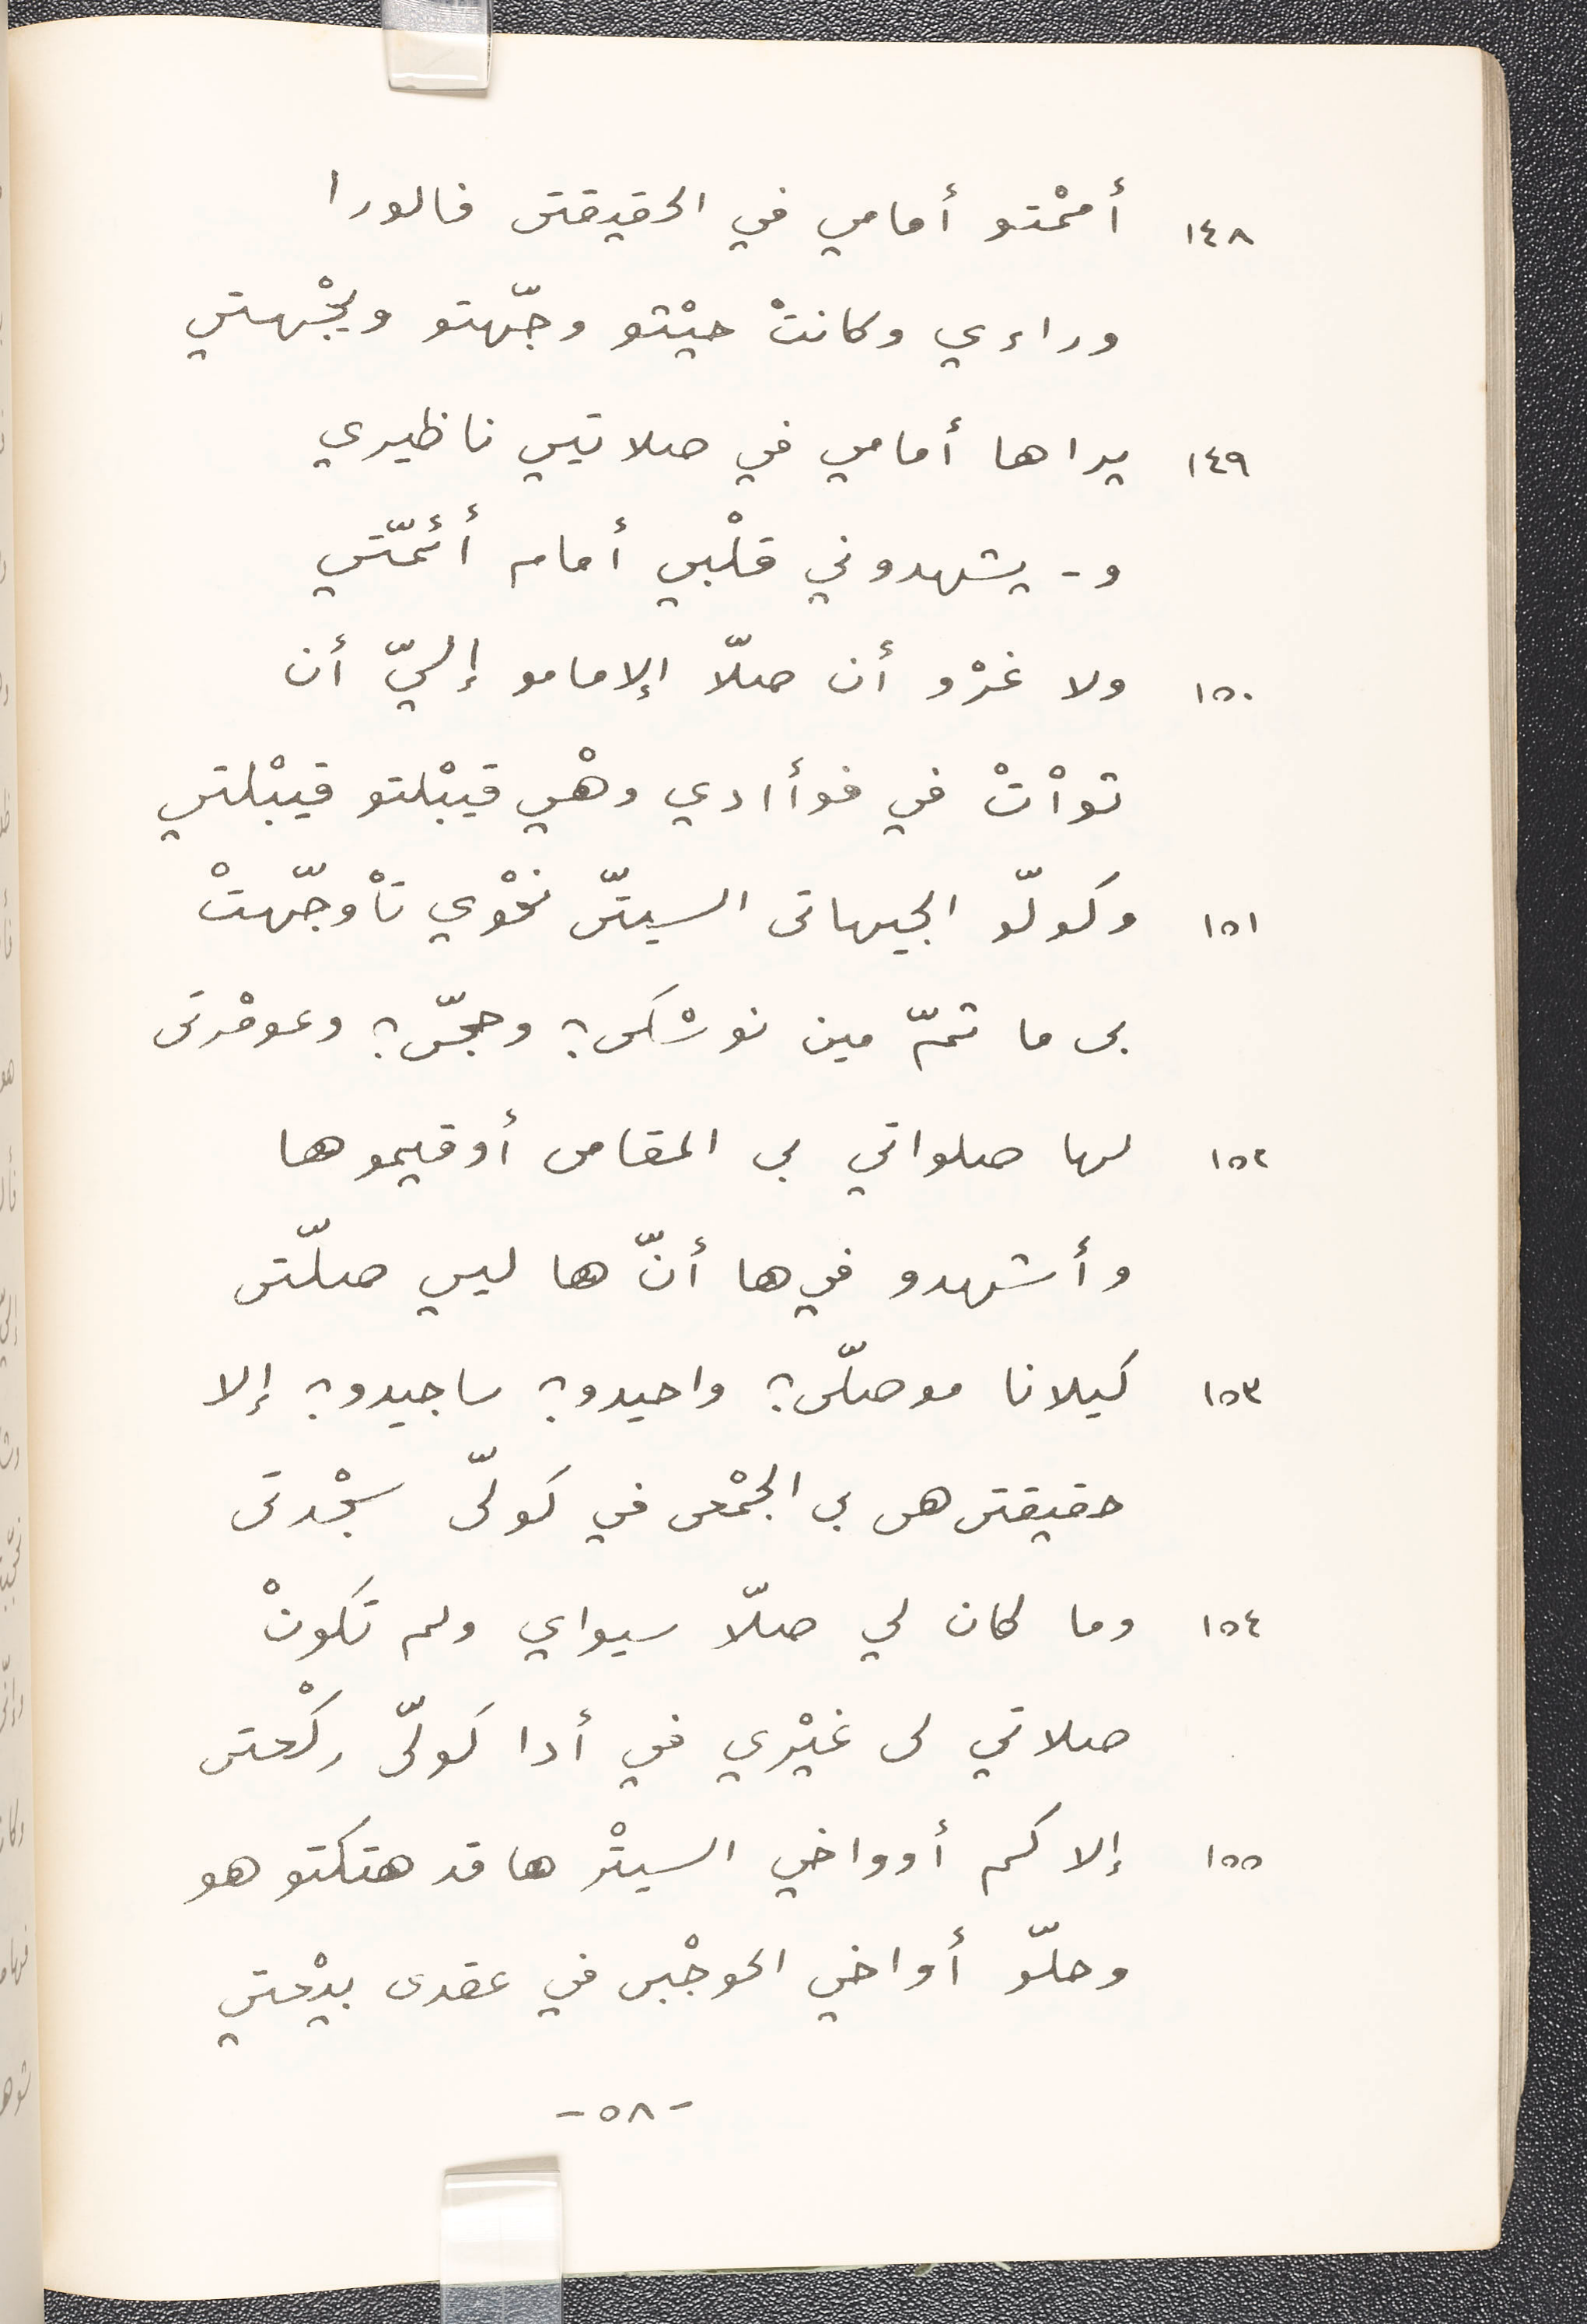 ١٤٨ أممْتو أمامي في الحقيقتى فالورا
وراءي وكانتْ حيْتو وجّهتو ويجْهتي
١٤٩ يراها أمامي في صلاتيي ناظيري
و- يشهدوني قلْبي أمام أئمّتي
١٥٠ ولا غرْو أن صلّا إلامامو إليّ أن
تواْتْ في فوأادي وهْي قيبْلتو قيبْلتي
١٥١ وكولّو الجيهاتى السيتّى نحْوي تاْوجّهتْ
بى ما تمّ مين نوسْكى؟ وحجّى؟ وعومْرتى
١٥٢ لها صلواتي بى المقامى أوقيموها
وأشهدو فيها أنّها ليي صلّتى
١٥٣ كيلانا موصلّى؟ واحيدو؟ ساجيدو؟ إلا
حقيقتى هى بى الجمْعى في كولّى سجْدتى
١٥٤ وما كان لي صلّا سيواي ولم تكونْ
صلاتي لى غيْري في أدا كولّى ركْعتى
١٥٥ إلا كم أوواخي السيتْرها قد هتكتوهو
وحلّو أواخي الحوجْبى في عقدى بيْعتي
-٥٨-